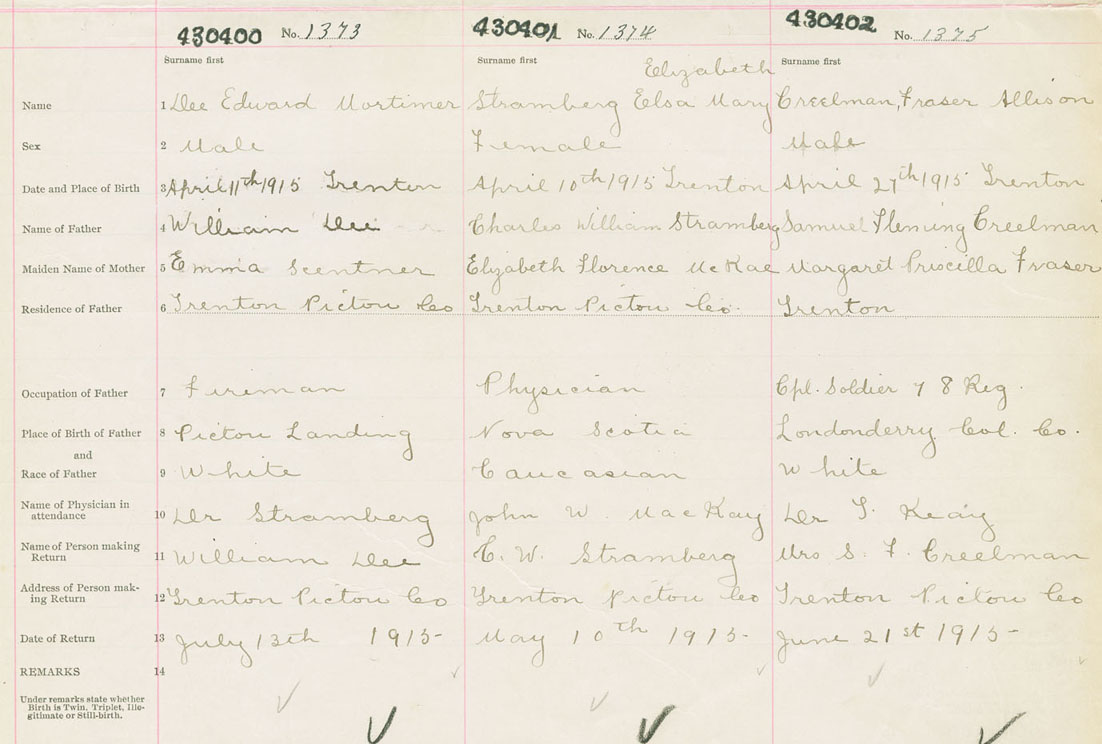 430400 No. 1373 430401 No. 1374 430402 No. 1375
Surname first Surname first Surname first
Elizabeth
Name 1 Dee Edward Mortimer Stramberg Elsa Mary Creelman, Fraser Allison
Sex 2 Male Female Male
Date and Place of Birth 3 April 11th 1915 Trenton April 10th 1915 Trenton April 27th 1915 Trenton
Name of Father 4 William Dee Charles William Stramberg Samuel Fleming Creelman
Maiden Name of Mother 5 Emma Scentner Elizabeth Florence McKae Margaret Priscilla Fraser
Residence of Father 6 Trenton Pictou Co Trenton Pictou Co. Trenton
Occupation of Father 7 Fireman Physician Cpl. Soldier 78 Reg.
Place of Birth of Father 8 Pictou Landing Nova Scotia Londonderry Col. Co.
and
Race of Father 9 White Caucasian White
Name of Physician in
attendance 10 Dr Stramberg John W. MacKay Dr Keay
Name of Person making
Return 11 William Dee C. W. Stramberg Mrs S. F. Creelman
Address of Person mak-
ing Return 12 Trenton Pictou Co Trenton Pictou Co Trenton Pictou Co
Date of Return 13 July 13th 1915- May 10th 1915- June 21st 1915-
REMARKS 14
Under remarks state whether
Birth is Twin, Triplet, Ille-
gitimate or Still-birth.